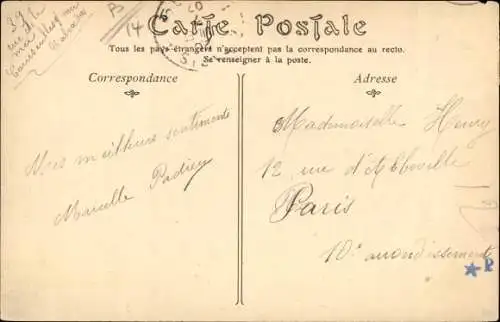 14
Carte Postale
Tous les pays étrangers n'acceptent pas la correspondance au recto.
Se renseigner à la poste.
Correspondance
Adresse
Mes meilleurs sentiments
Marcelle
Mademoiselle Henry
12 rue d'Abbeville
Paris
10e arrondissement
P